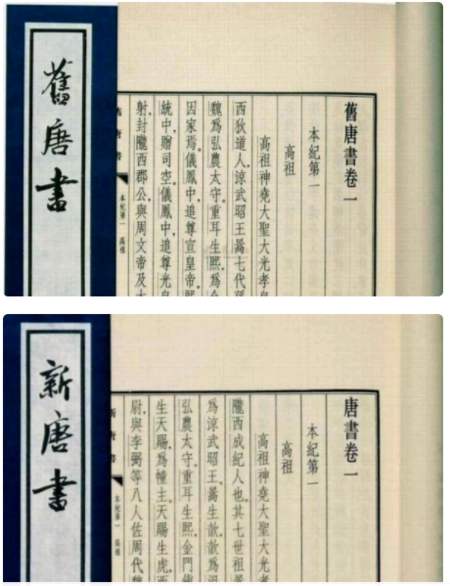 舊唐書
舊唐書卷一
本紀第一
高祖
高祖神堯大聖大光孝皇
西狄道人涼武昭王暠七代孫
魏為弘農太守重耳生熙為金
因家焉儀鳳中追尊宣皇帝熙
統中贈司空儀鳳中追尊光皇
射封隴西郡公與周文帝及太
舊唐書
本紀第一 高祖
新唐書
唐書卷一
本紀第一
高祖
高祖神堯大聖大光孝
隴西成紀人也其七世祖暠
為涼武昭王暠生歆歆為
弘農太守重耳生熙金門
生天賜為幢主天賜生虎西
尉與李弼等八人佐周代魏
本紀第一 高祖